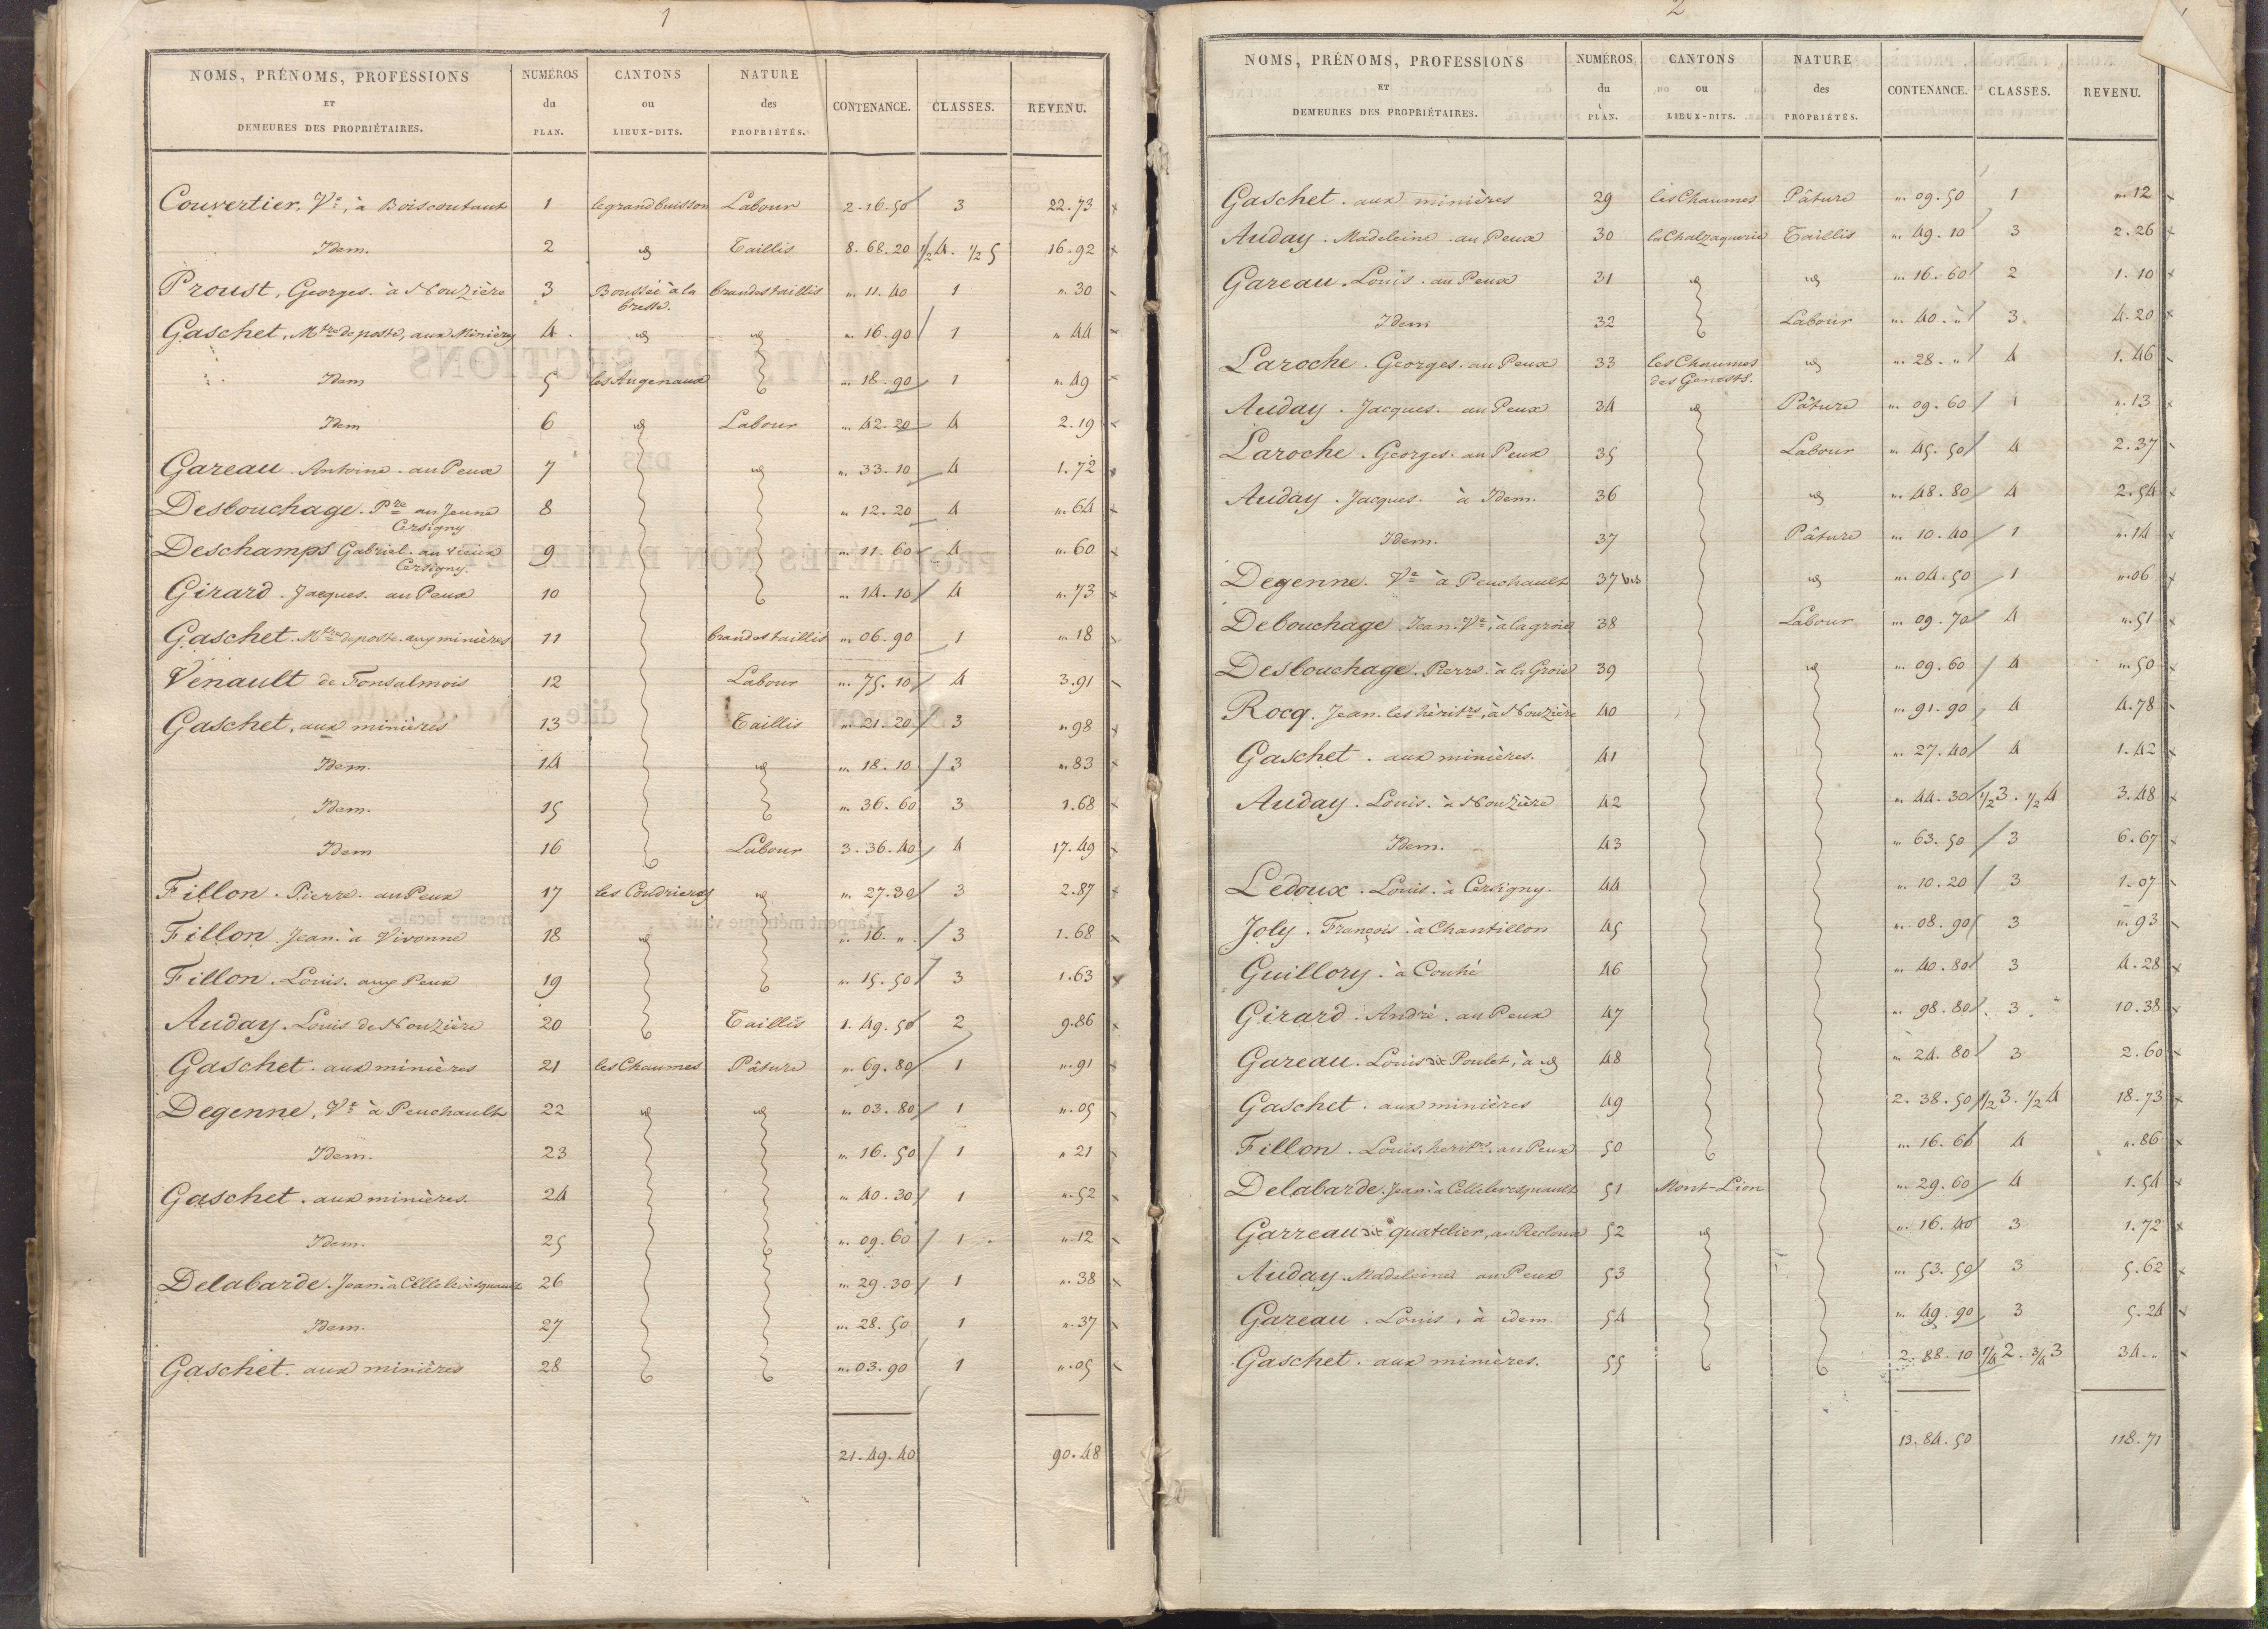 1
NOMS, PRÉNOMS, PROFESSIONS ET DEMEURES DES PROPRIÉTAIRES. NUMÉROS du PLAN. CANTONS ou LIEUX-DITS. NATURE des PROPRIÉTÉS. CONTENANCE. CLASSES. REVENU.
Couvertier, Ve, à Boiscoutant 1 le grand buisson Labour 2.16.50 3 22.73
Idem. 2 id Taillis 8.68.20 1/2 4. 1/2 5 16.92
Proust, Georges. à Nouzière 3 Boussée à la brette. brandes taillis " 11.40 1 " 30
Gaschet, Mtre de poste, aux Minières 4 id id " 16.90 1 " 44
Idem 5 les Augenaux " 18.90 1 " 49
Idem 6 id Labour " 42.20 4 2.19
Gareau. Antoine. au Peux 7 id " 33.10 4 1.72
Desbouchage. Pre au Jeune Cersigny 8 " 12.20 4 " 64
Deschamps Gabriel. au vieux Cersigny. 9 " 11.60 4 " 60
Girard. Jacques. au Peux 10 " 14.10 4 " 73
Gaschet. Mtre de poste. aux minières 11 brandes taillis " 06.90 1 " 18
Venault de Fonsalmois 12 Labour " 75.10 4 3.91
Gaschet, aux minières 13 Taillis " 21.20 3 " 98
Idem. 14 id " 18.10 3 " 83
Idem. 15 " 36.60 3 1.68
Idem 16 Labour 3.36.40 4 17.49
Fillon. Pierre. au Peux 17 les Coudrières id " 27.30 3 2.87
Fillon. Jean. à Vivonne 18 id " 16. " 3 1.68
Fillon. Louis. aux Peux 19 " 15.50 3 1.63
Auday. Louis de Nouzière 20 Taillis 1.49.50 2 9.86
Gaschet. aux minières 21 les Chaumes Pâture " 69.80 1 " 91
Degenne, Ve à Peuchault 22 id id " 03.80 1 " 05
Idem. 23 " 16.50 1 " 21
Gaschet. aux minières. 24 " 40.30 1 " 52
Idem. 25 " 09.60 1 " 12
Delabarde. Jean. à Celle levesquault 26 " 29.30 1 " 38
Idem. 27 " 28.50 1 " 37
Gaschet. aux minières 28 " 03.90 1 " 05
21.49.40 90.48
2
NOMS, PRÉNOMS, PROFESSIONS ET DEMEURES DES PROPRIÉTAIRES. NUMÉROS du PLAN. CANTONS ou LIEUX-DITS. NATURE des PROPRIÉTÉS. CONTENANCE. CLASSES. REVENU.
Gaschet. aux minières 29 les Chaumes Pâture " 09.50 1 " 12
Auday. Madeleine. au Peux 30 la Chalzaquerie Taillis " 49.10 3 2.26
Gareau. Louis. au Peux 31 id id " 16.60 2 1.10
Idem 32 Labour " 40. " 3 4.20
Laroche. Georges. au Peux 33 les Chaumes des Genests. id " 28. " 4 1.46
Auday. Jacques. au Peux 34 id Pâture " 09.60 1 " 13
Laroche. Georges. au Peux 35 Labour " 45.50 4 2.37
Auday. Jacques. à Idem. 36 id " 48.80 4 2.54
Idem. 37 Pâture " 10.40 1 " 14
Degenne. Ve à Peuchault 37 bis id " 04.50 1 " 06
Debouchage. Jean. Ve, à la groie 38 Labour " 09.70 4 " 51
Desbouchage. Pierre. à la Groie 39 id " 09.60 4 " 50
Rocq. Jean. les héritrs, à Nouzière 40 " 91.90 4 4.78
Gaschet. aux minières. 41 " 27.40 4 1.42
Auday. Louis. à Nouzière 42 " 44.30 1/2 3. 1/2 4 3.48
Idem. 43 " 63.50 3 6.67
Ledoux. Louis. à Cersigny. 44 " 10.20 3 1.07
Joly. François. à Chantillon 45 " 08.90 3 " 93
Guillory. à Couhé 46 " 40.80 3 4.28
Girard. André. au Peux 47 " 98.80 3 10.38
Gareau. Louis dit Poulet, à id 48 " 24.80 3 2.60
Gaschet. aux minières 49 2.38.50 1/2 3. 1/2 4 18.73
Fillon. Louis. héritrs. au Peux 50 " 16.60 4 " 86
Delabarde. Jean. à Celle levesquault 51 Mont-Lion " 29.60 4 1.54
Garreau dit quatelier, au Recloux 52 id " 16.40 3 1.72
Auday. Madeleine au Peux 53 " 53.50 3 5.62
Gareau. Louis, à idem 54 " 49.90 3 5.24
Gaschet. aux minières. 55 2.88.10 1/4 2. 3/4 3 34. "
13.84.50 118.71